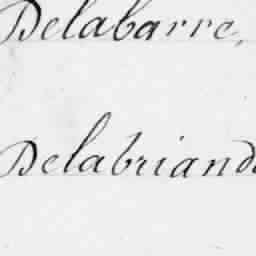 Delabarre,
Delabriand